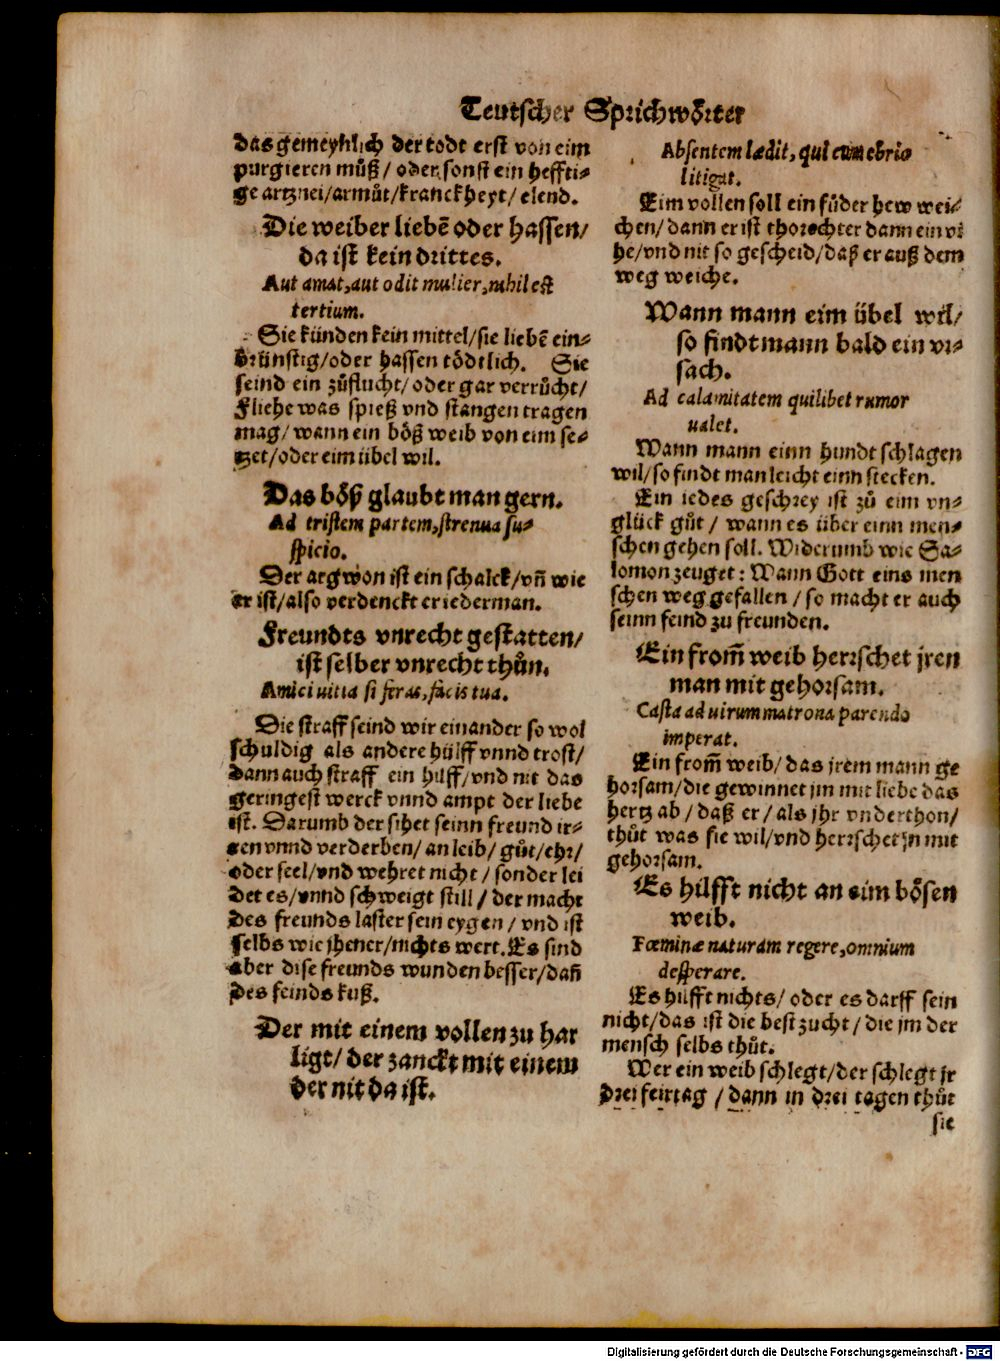 Teutscher Sprichwörter
das gemeyklich der todt erst von eim
purgieren můß / oder sonst ein heffti⸗
ge artznei/armůt/kranckheyt/ elend.
Die weiber liebē oder hassen/
da ist kein drittes.
Aut amat, aut odit mulier, nihil est
tertium.
Sie künden kein mittel/sie liebē ein⸗
brünstig/oder hassen tödtlich. Sie
seind ein zůflucht/ oder gar verrůcht/
Fliehe was spieß vnd stangen tragen
mag/ wann ein böß weib von eim se⸗
tzet/oder eim übel wil.
Das böß glaubt man gern.
Ad tristem partem, strenua su⸗
spicio.
Der argwon ist ein schalck/vñ wie
er ist/also verdenckt er iederman.
Freundts vnrecht gestatten/
ist selber vnrecht thůn.
Amici uitia si feras, facis tua.
Die straff seind wir einander so wol
schuldig als andere hülff vnnd trost/
dann auch straff ein hilff/vnd nit das
geringest werck vnnd ampt der liebe
ist. Darumb der sihet seinn freund ir⸗
ren vnnd verderben/ an leib/ gůt/ehr/
oder seel/vnd wehret nicht / sonder lei
det es/vnnd schweigt still / der macht
des freunds laster sein eygen / vnd ist
selbs wie jhener/nichts wert. Es sind
aber dise freunds wunden besser/dañ
des feinds kuß.
Der mit einem vollen zu har
ligt/ der zanckt mit einem
der nit da ist.
Absentem lædit, qui cum ebrio
litigat.
Eim vollen soll ein fůder hew wei⸗
chen/ dann er ist thorechter dann ein vi
he/vnd nit so gescheid/daß er auß dem
weg weiche.
Wann mann eim übel wil/
so findt mann bald ein vr⸗
sach.
Ad calamitatem quilibet rumor
ualet.
Wann mann einn hundt schlagen
wil/so findt man leicht einn stecken.
Ein iedes geschrey ist zů eim vn⸗
glück gůt / wann es über einn men⸗
schen gehen soll. Widerumb wie Sa⸗
lomon zeuget : Wann Gott eins men
schen weg gefallen / so macht er auch
seinn feind zu freunden.
Ein from̃ weib herrschet jren
man mit gehorsam.
Casta ad uirum matrona parendo
imperat.
Ein from̃ weib/ das jrem mann ge
horsam/die gewinnet jm mit liebe das
hertz ab / daß er / als jhr vnderthon/
thůt was sie wil/vnd herrschet jn mit
gehorsam.
Es hilfft nicht an eim bösen
weib.
Fœminæ naturam regere, omnium
desperare.
Es hilfft nichts/ oder es darff sein
nicht/das ist die best zucht / die jm der
mensch selbs thůt.
Wer ein weib schlegt/der schlegt jr
drei feirtag / dann in drei tagen thůt
sie
Digitalisierung gefördert durch die Deutsche Forschungsgemeinschaft - DFG